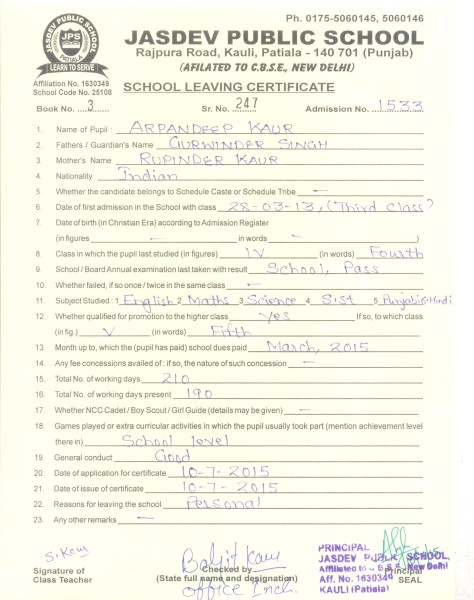 Ph. 0175-5060145, 5060146
JASDEV PUBLIC SCHOOL
JASDEV PUBLIC SCHOOL
JPS
PATIALA
LEARN TO SERVE
Rajpura Road, Kauli, Patiala - 140 701 (Punjab)
(AFILATED TO C.B.S.E., NEW DELHI)
Affiliation No. 1630349
School Code No. 25108
SCHOOL LEAVING CERTIFICATE
Book No. 3 Sr. No. 247 Admission No. 1533
1. Name of Pupil : ARPANDEEP KAUR
2. Fathers / Guardian's Name GURWINDER SINGH
3. Mother's Name RUPINDER KAUR
4. Nationality Indian
5. Whether the candidate belongs to Schedule Caste or Schedule Tribe —
6. Date of first admission in the School with class 28-03-13, (Third Class)
7. Date of birth (in Christian Era) according to Admission Register
(in figures — in words — )
8. Class in which the pupil last studied (in figures) IV (in words) Fourth
9. School / Board Annual examination last taken with result School, Pass
10. Whether failed, if so once / twice in the same class —
11. Subject Studied : 1 English 2 Maths 3 Science 4 S.st 5 Punjabi 6 Hindi
12. Whether qualified for promotion to the higher class Yes If so, to which class
(in fig.) V (in words) Fifth
13. Month up to, which the (pupil has paid) school dues paid March, 2015
14. Any fee concessions availed of : if so, the nature of such concession —
15. Total No. of working days 210
16. Total No. of working days present 190
17. Whether NCC Cadet / Boy Scout / Girl Guide (details may be given) —
18. Games played or extra curricular activities in which the pupil usually took part (mention achievement level
there in) School level
19. General conduct Good
20. Date of application for certificate 10-7-2015
21. Date of issue of certificate 10-7-2015
22. Reasons for leaving the school Personal
23. Any other remarks —
Signature of
Class Teacher
Baljit Kaur
Checked by
(State full name and designation)
office Incl.
PRINCIPAL
JASDEV PUBLIC SCHOOL,
Affiliated to C.B.S.E. New Delhi
Aff. No. 1630349
KAULI (Patiala)
Principal
SEAL